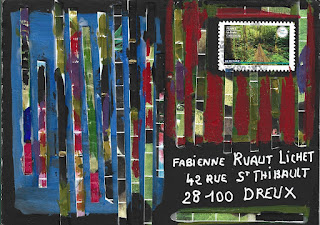 FABIENNE RUAUT LICHET
42 RUE ST THIBAULT
28100 DREUX